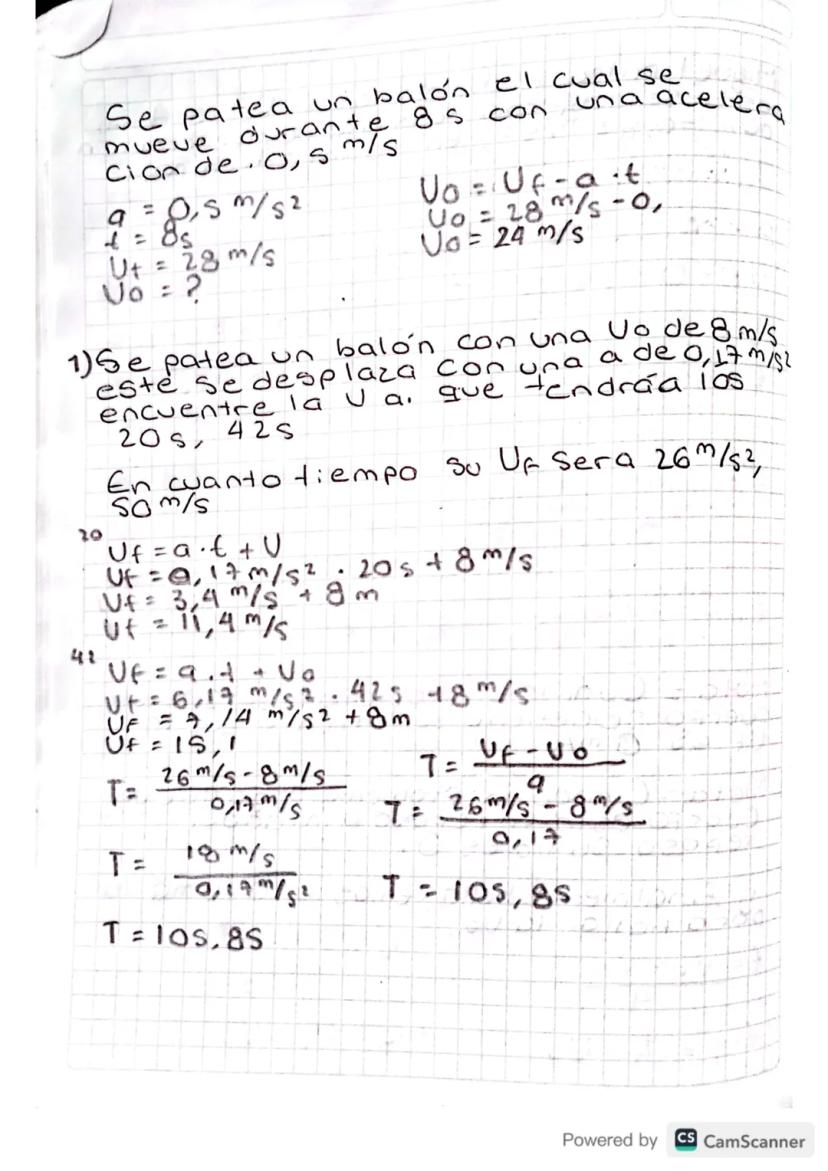 Se patea un balón el cual se
mueve durante 8s con una acelera
cion de. 0,5 m/s
a = 0,5 m/s²
t = 8s
Ut = 28 m/s
Uo = ?
Uo = Uf - a · t
Uo = 28 m/s - 0,
Uo = 24 m/s
1) Se patea un balón con una Uo de 8 m/s
este se desplaza con una a de 0,17 m/s²
encuentre la U a. que tendráa los
20s, 42s
En cuanto tiempo su Uf sera 26 m/s²,
50 m/s
20
Uf = a · t + U
Uf = 0,17 m/s² · 20s + 8 m/s
Uf = 3,4 m/s + 8 m
Uf = 11,4 m/s
42
Uf = a . t + Uo
Uf = 0,17 m/s² . 42s + 8 m/s
Uf = 7,14 m/s² + 8m
Uf = 15,1
T = 26 m/s - 8 m/s
0,17 m/s
T = 18 m/s
0,17 m/s²
T = 105,8S
T = Uf - Uo
a
T = 26 m/s - 8 m/s
0,17
T = 105,8S
Powered by CS CamScanner